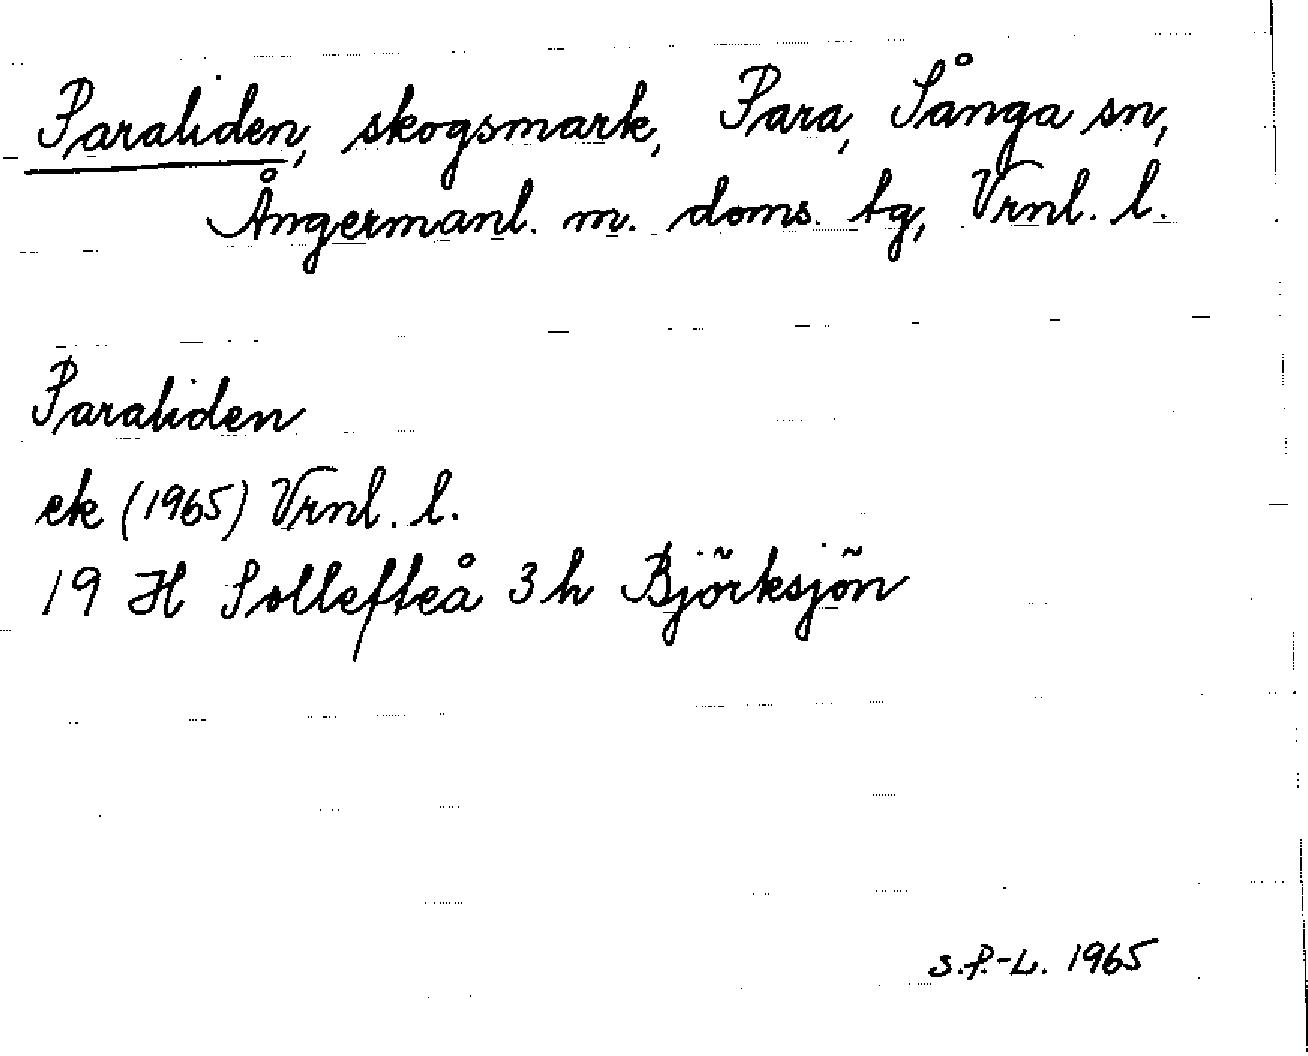 Paraliden, skogsmark, Para, Sånga sn,
Ångermanl. m. doms. tg, Vrnl. l.
Paraliden
ek (1965) Vrnl. l.
19 H Sollefteå 3h Björksjön
S.P.-L. 1965